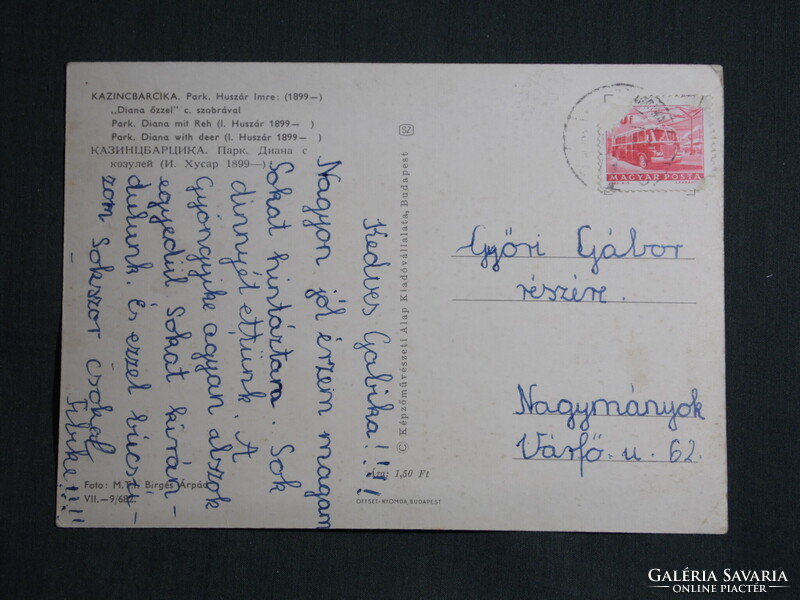 KAZINCBARCIKA. Park. Huszár Imre: (1899—)
„Diana őzzel" c. szobrával
Park. Diana mit Reh (I. Huszár 1899— )
Park. Diana with deer (I. Huszár 1899— )
КАЗИНЦБАРЦИКА. Парк. Диана с
козулей (И. Хусар 1899—)
Kedves Gabika!!!!
Nagyon jól érzem magam
Sokat hintáztam. Sok
dinnyét ettünk. A
Gyöngyike agyan alszok
egyedül Sokat kirán-
dulunk. És ezzel búcsú-
zom Sokszor csókol
Tibike!!!!
Foto: M.T.I. Birgés Árpád
VII.—9/682
© Képzőművészeti Alap Kiadóvállalata, Budapest
SZ
Ára: 1,50 Ft
OFFSET-NYOMDA, BUDAPEST
MAGYAR POSTA
Győri Gábor
részére.
Nagymányok
Vásfő. u. 62.
GALÉRIA SAVARIA
ONLINE PIACTÉR